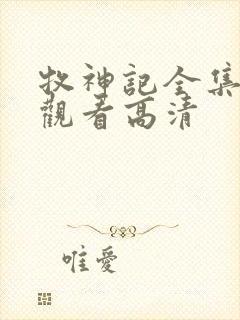 牧神記全集
觀看高清
唯愛